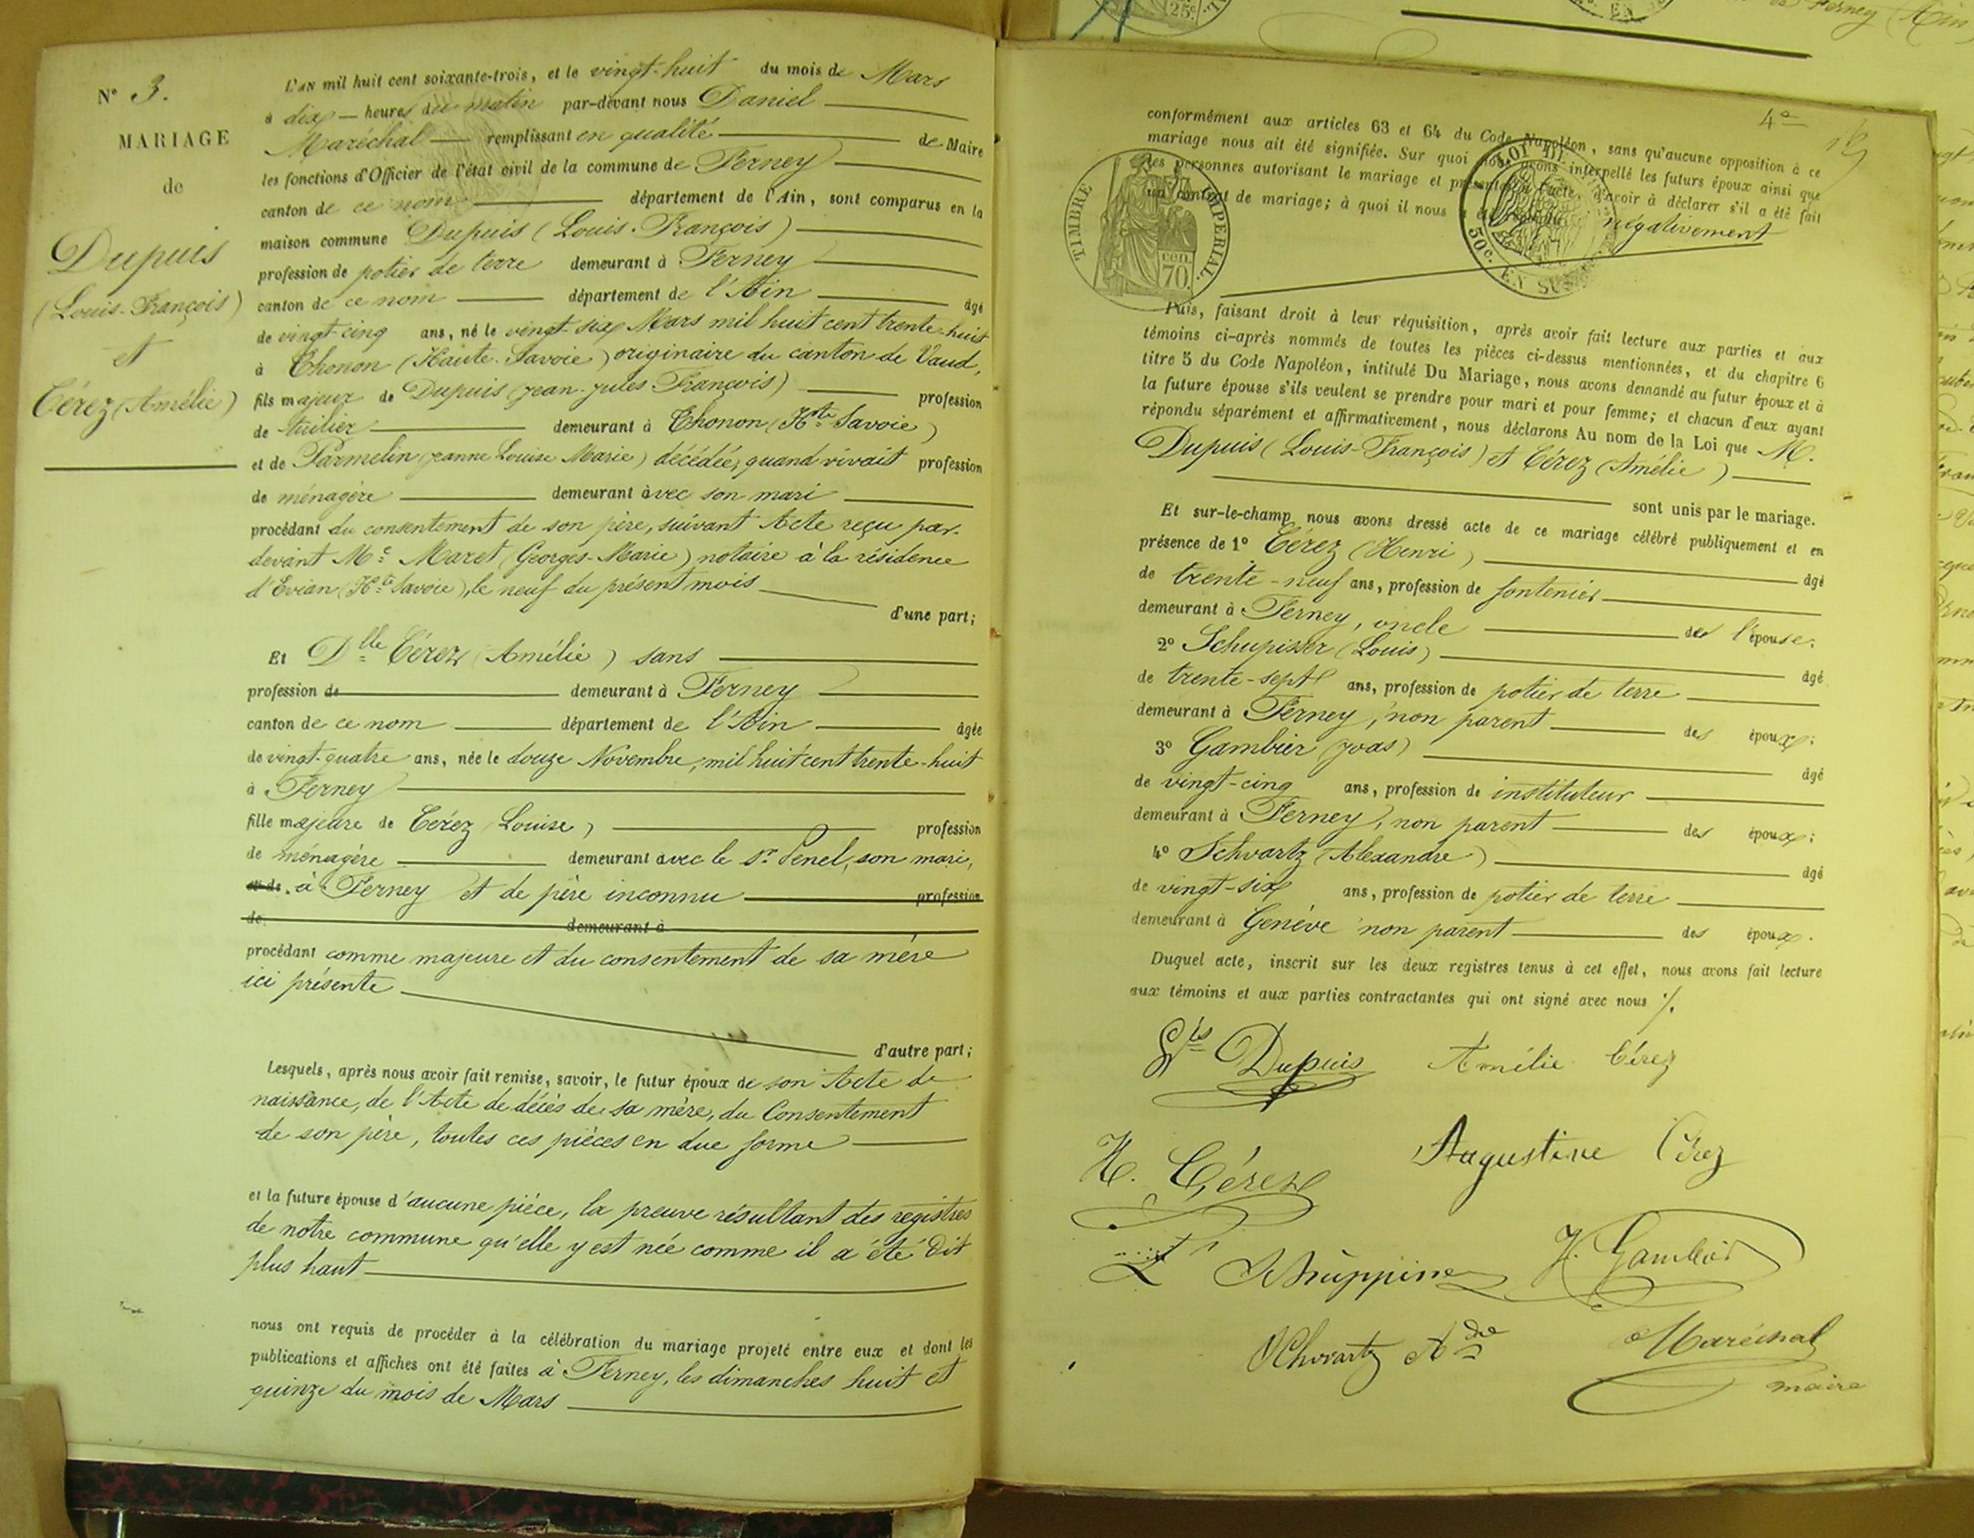 N° 3.
MARIAGE
de
Dupuis
(Louis-François)
et
Cérez (Amélie)
L'AN mil huit cent soixante-trois, et le vingt-huit du mois de Mars
à dix heures du matin par-devant nous Daniel
Maréchal remplissant en qualité de Maire
les fonctions d'Officier de l'état civil de la commune de Ferney
canton de ce nom département de l'Ain, sont comparus en la
maison commune Dupuis (Louis-François)
profession de potier de terre demeurant à Ferney
canton de ce nom département de l'Ain âgé
de vingt-cinq ans, né le vingt-six Mars mil huit cent trente-huit
à Thonon (Haute-Savoie) originaire du canton de Vaud,
fils majeur de Dupuis (Jean-Jules-François) profession
de tuilier demeurant à Thonon (Hte Savoie)
et de Parmelin (Jeanne Louise Marie) décédée, quand vivait profession
de ménagère demeurant avec son mari
procédant du consentement de son père, suivant Acte reçu par-
devant Me Maret (Georges-Marie) notaire à la résidence
d'Evian (Hte Savoie), le neuf du présent mois
d'une part;
Et Dlle Cérez (Amélie) sans
profession de demeurant à Ferney
canton de ce nom département de l'Ain âgée
de vingt-quatre ans, née le douze Novembre, mil huit cent trente-huit
à Ferney
fille majeure de Cérez (Louise) profession
de ménagère demeurant avec le Sr Penel, son mari,
et de à Ferney et de père inconnu profession
de demeurant à
procédant comme majeure et du consentement de sa mère
ici présente
d'autre part;
Lesquels, après nous avoir fait remise, savoir, le futur époux de son Acte de
naissance, de l'Acte de décès de sa mère, du Consentement
de son père, toutes ces pièces en due forme
et la future épouse d'aucune pièce, la preuve résultant des registres
de notre commune qu'elle y est née comme il a été dit
plus haut
nous ont requis de procéder à la célébration du mariage projeté entre eux et dont les
publications et affiches ont été faites à Ferney, les dimanches huit et
quinze du mois de Mars
4e
conformément aux articles 63 et 64 du Code Napoléon, sans qu'aucune opposition à ce
mariage nous ait été signifiée. Sur quoi nous avons interpellé les futurs époux ainsi que
les personnes autorisant le mariage et présentes à l'acte, d'avoir à déclarer s'il a été fait
un contrat de mariage; à quoi il nous a été répondu négativement
TIMBRE IMPERIAL.
cen. 70.
LOI DE
50c. EN SUS
Puis, faisant droit à leur réquisition, après avoir fait lecture aux parties et aux
témoins ci-après nommés de toutes les pièces ci-dessus mentionnées, et du chapitre 6
titre 5 du Code Napoléon, intitulé Du Mariage, nous avons demandé au futur époux et à
la future épouse s'ils veulent se prendre pour mari et pour femme; et chacun d'eux ayant
répondu séparément et affirmativement, nous déclarons Au nom de la Loi que M.
Dupuis (Louis-François) et Cérez (Amélie)
sont unis par le mariage.
Et sur-le-champ nous avons dressé acte de ce mariage célébré publiquement et en
présence de 1° Cérez (Henri) âgé
de trente-neuf ans, profession de fontenier
demeurant à Ferney, oncle de l'épouse.
2° Schupisser (Louis) âgé
de trente-sept ans, profession de potier de terre
demeurant à Ferney, non parent des époux;
3° Gambier (Joas) âgé
de vingt-cinq ans, profession de instituteur
demeurant à Ferney, non parent des époux;
4° Schvartz (Alexandre) âgé
de vingt-six ans, profession de potier de terre
demeurant à Genève non parent des époux.
Duquel acte, inscrit sur les deux registres tenus à cet effet, nous avons fait lecture
aux témoins et aux parties contractantes qui ont signé avec nous ./.
Dupuis Amélie Cérez
H. Cérez Augustine Cérez
J. Gambier
Schvartz Adre Maréchal
maire